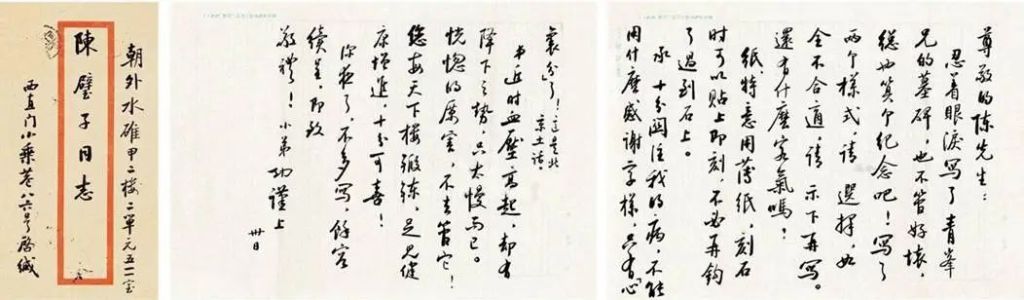 朝外水碓甲二楼二单元五一一室
陳璧子同志
西直门小乘巷八六号启缄
尊敬的陈先生：
忍着眼淚写了青峯
兄的墓碑，也不管好壊，
總也算个纪念吧！写了
两个樣式，请 選擇，如
全不合適，请 示下再写。
還有什麼客氣嗎！
纸，特意用薄纸，刻石
时可以贴上即刻，不必再钩
了過到石上。
承 十分関注我的病，不能
用什麼感谢字樣，只有心
裏分了！这是北
京土话。
弟近时血壓高起，却有
降下之勢，只太慢而已。
恍惚的厉害，不去管它！
您每天下楼锻练，足见健
康增進，十分可喜！
了，不多写，餘容
續呈，即致
敬禮！ 小弟 功谨上
卅日